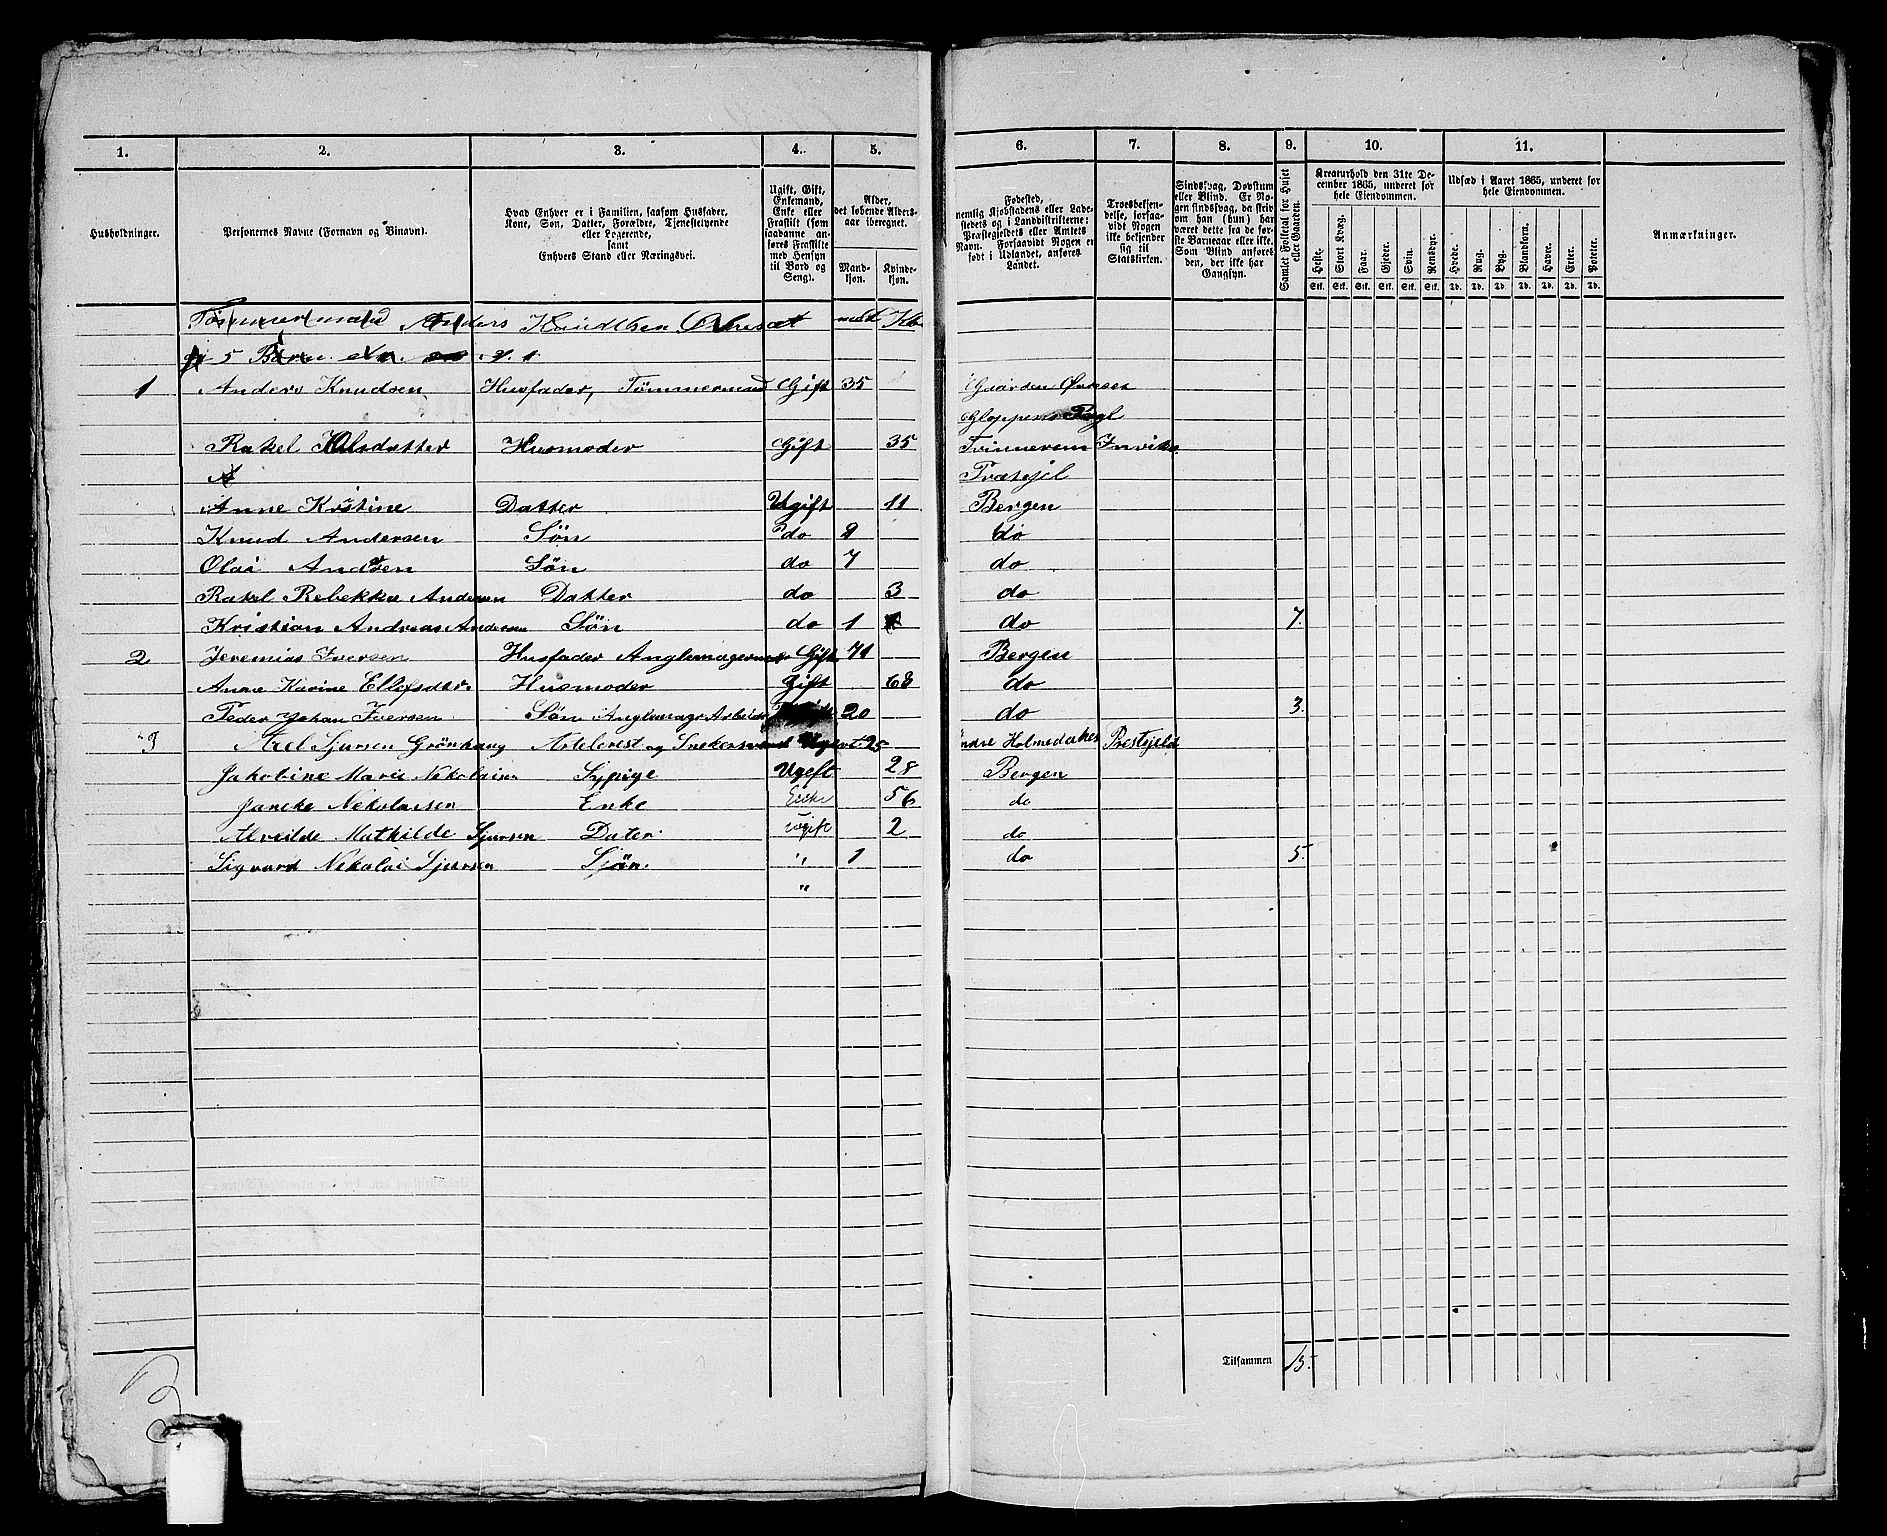 1. 2. 3. 4. 5. 6. 7. 8. 9. 10. 11.
Husholdninger.
Personernes Navne (Fornavn og Tilnavn).
Hvad Enhver er i Familien, saasom Husfader,
Kone, Søn, Datter, Forældre, Tjenestetyende
eller Logerende,
samt
Enhvers Stand eller Næringsvei.
Ugift, Gift,
Enkemand,
Enke eller
Fraskilt (som
saadanne an-
føres Fraskilte
med Hensyn
til Bord og
Seng).
Alder,
det løbende Alders-
aar iberegnet.
Mand-
kjøn.
Kvinde-
kjøn.
Fødested,
nemlig Kjøbstadens eller Lade-
stedets og i Landdistrikterne:
Præstegjeldets eller Amtets
Navn. Forsaavidt Nogen er
født i Udlandet, anføres
Landet.
Troesbekjen-
delse, forsaa-
vidt Nogen
ikke bekjender
sig til
Statskirken.
Sindssvag, Døvstum
eller Blind. Er No-
gen sindssvag, da skriv
om han (hun) har
været dette fra de før-
ste Barneaar eller ikke.
Som Blind anføres
den, der ikke har
Gangsyn.
Samlet Folketal for Huset eller Gaarden.
Kreaturhold den 31te De-
cember 1865, underet for
hele Eiendommen.
Heste. Stort Kvæg. Faar. Gjeder. Svin. Rensdyr.
Stk. Stk. Stk. Stk. Stk. Stk.
Udsæd i Aaret 1865, underet for
hele Eiendommen.
Hvede. Rug. Byg. Blandkorn. Havre. Erter. Poteter.
Td. Td. Td. Td. Td. Td. Td.
Anmærkninger.
Tømmermand Anders Knudtsen
5 Børn
1 Anders Knudsen Husfader, Tømmermand Gift 35 Gaarden
Gloppens
Rakel Husmoder Gift 35
A
Anne Kristine Datter Ugift 11 Bergen
Knud Andersen Søn do 9 do
Olai Andersen Søn do 7 do
Rakel Rebekka Andersen Datter do 3 do
Kristian Andreas Andersen Søn do 1 do 7.
2 Jeremias Iversen Husfader Anglemager Gift 71 Bergen
Anne Karine Ellefsdtr. Husmoder Gift 68 do
Peder Johan Iversen Søn 20 do 3.
3 Axel Sjursen Grönhaug og 25 Indre Holmedahls Prestejeld
Jakobine Marie Nekolaisen Sypige Ugeft 28 Bergen
Jancke Nekolaisen Enke Enke 56 do
Alveilde Mathilde Sjursen Dater ugift 2 do
Sigvard Nekolai Sjursen Sjön " 1 do 5.
"
Tilsammen 15.